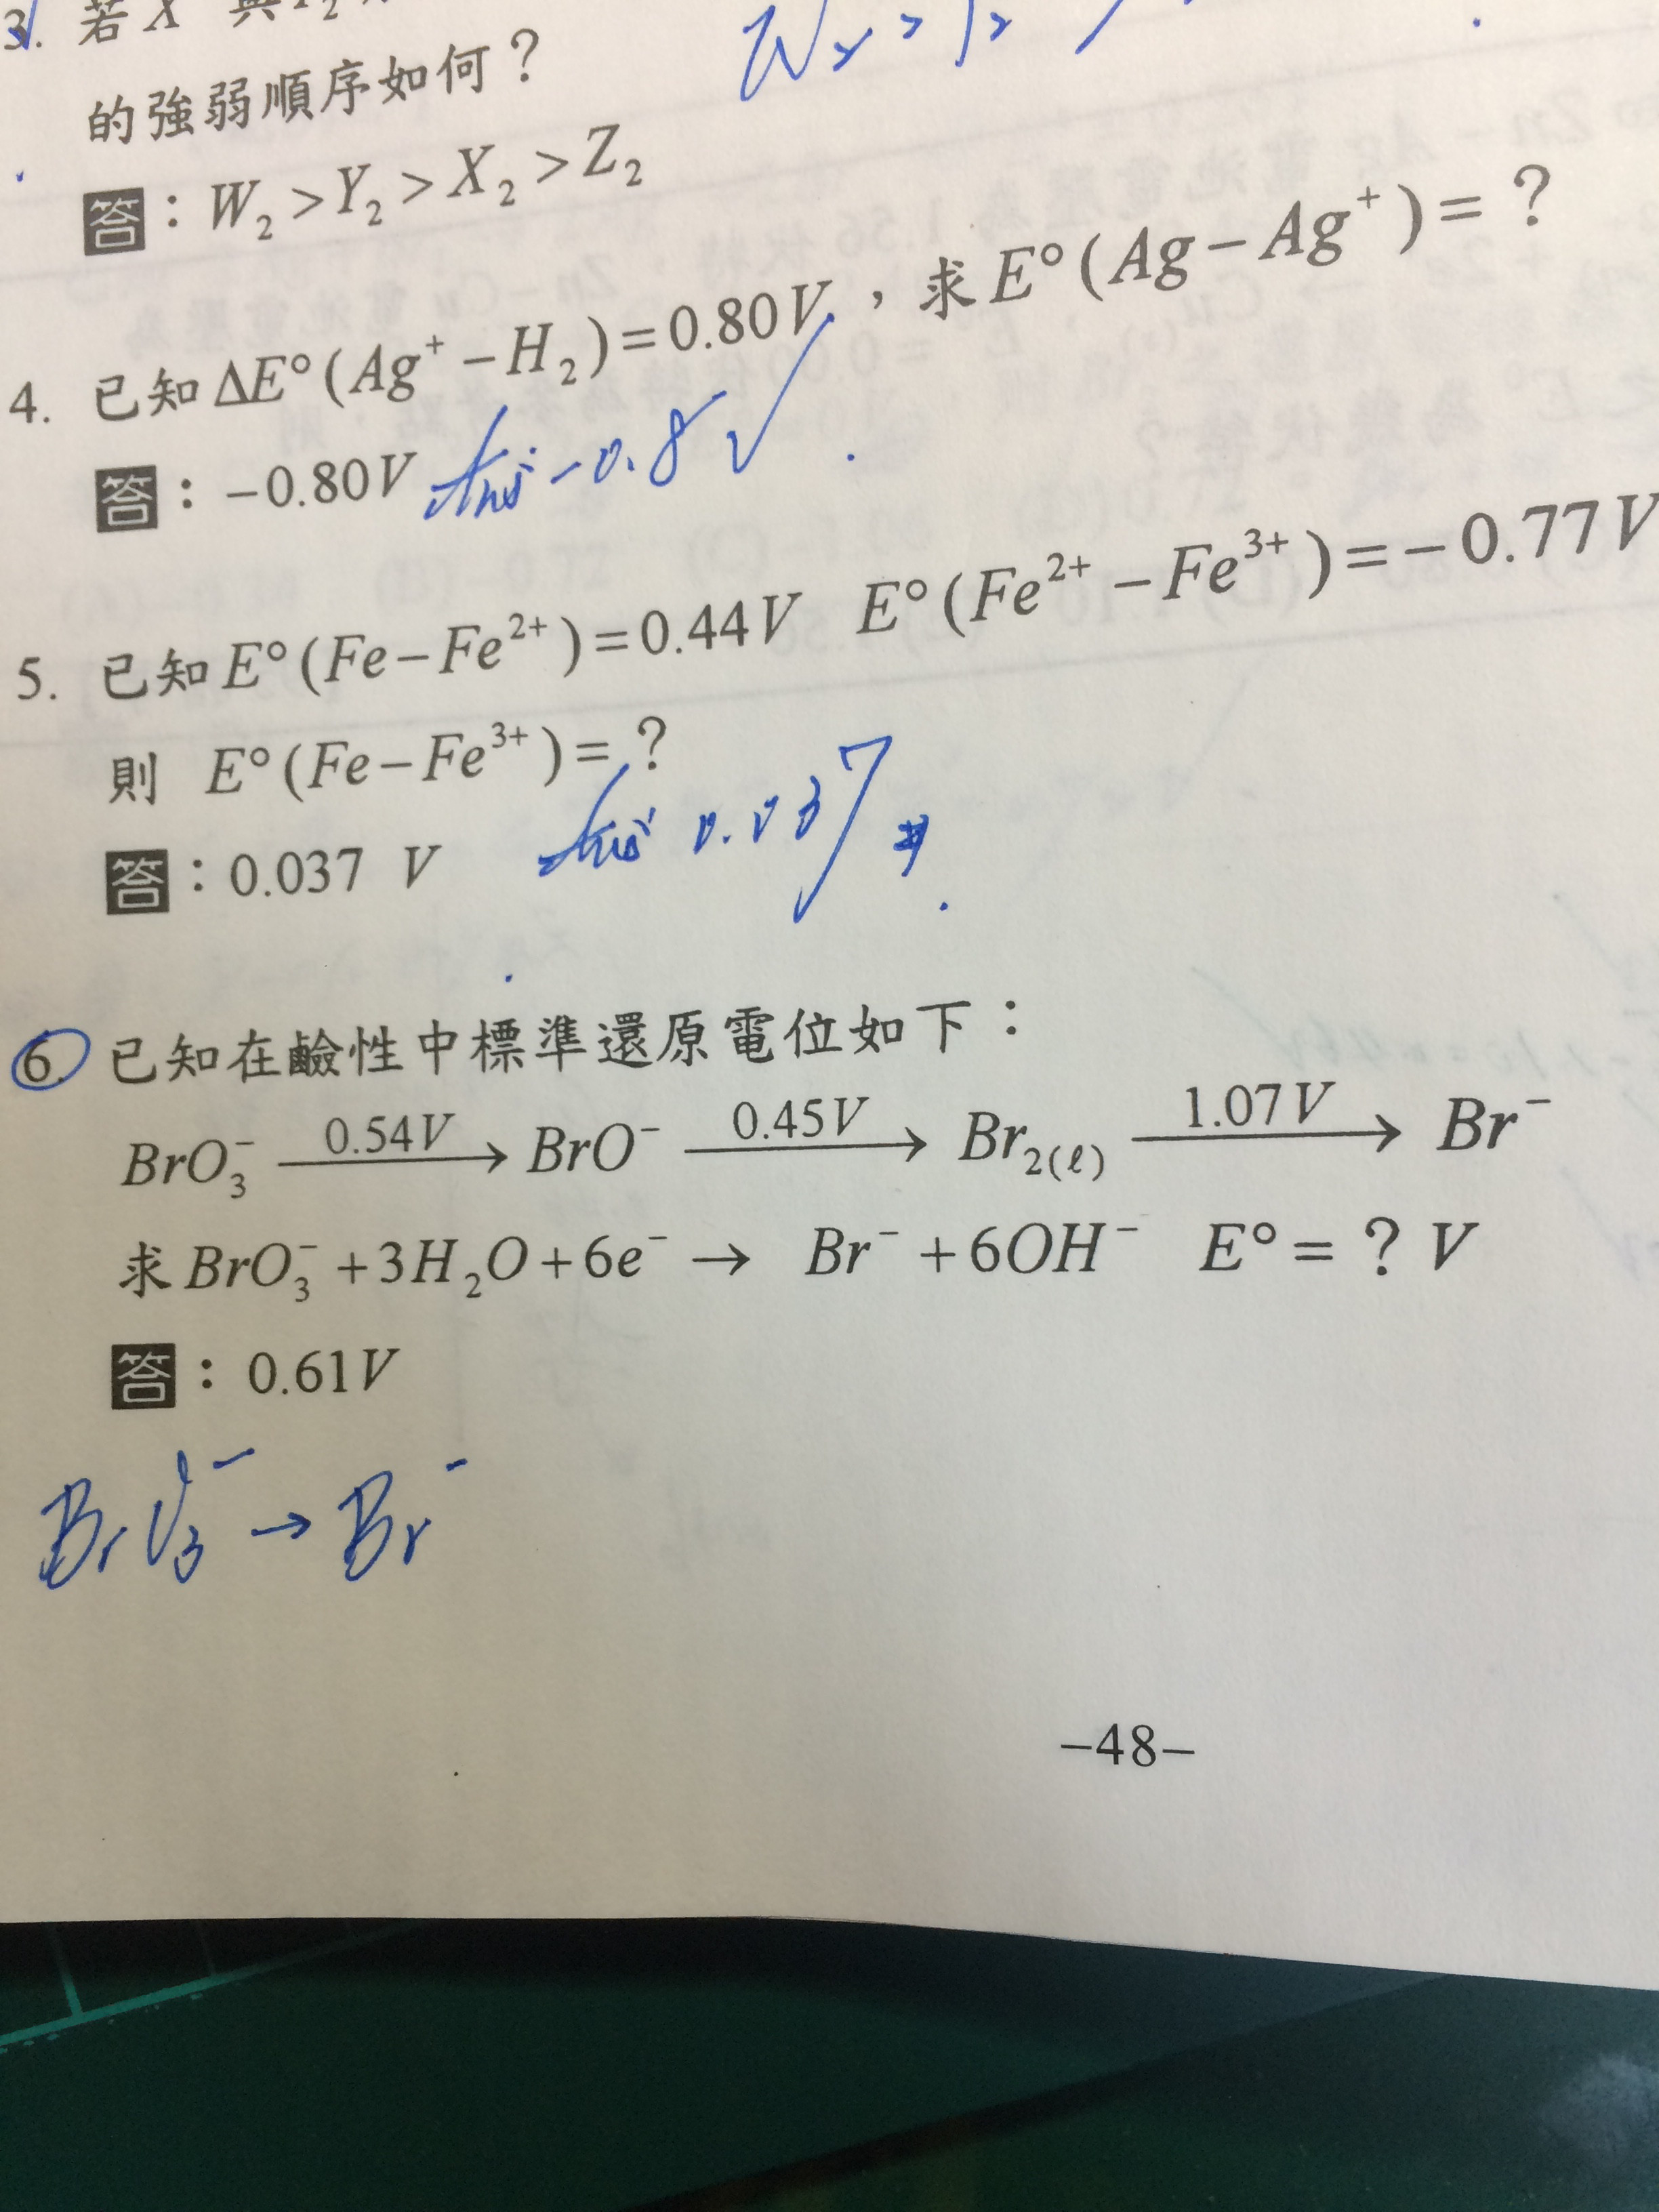 3. 若 X
W₂ > Y₂
的強弱順序如何？
答：W₂ > Y₂ > X₂ > Z₂
4. 已知 ΔE°(Ag⁺ − H₂) = 0.80V，求 E°(Ag − Ag⁺) = ？
答：−0.80V Ans: −0.8V
5. 已知 E°(Fe − Fe²⁺) = 0.44V E°(Fe²⁺ − Fe³⁺) = −0.77V
則 E°(Fe − Fe³⁺) = ？
答：0.037 V Ans: 0.037 #
6. 已知在鹼性中標準還原電位如下：
BrO₃⁻ —0.54V→ BrO⁻ —0.45V→ Br₂(ℓ) —1.07V→ Br⁻
求 BrO₃⁻ + 3H₂O + 6e⁻ → Br⁻ + 6OH⁻ E° = ？ V
答：0.61V
BrO₃⁻ → Br⁻
−48−